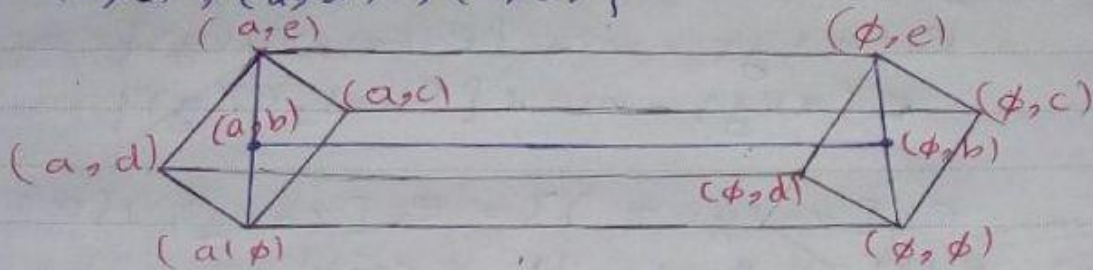 (a,e) (ϕ,e)
(a,c) (ϕ,c)
(a,b) (ϕ,b)
(a,d) (ϕ,d)
(a(ϕ) (ϕ,ϕ)